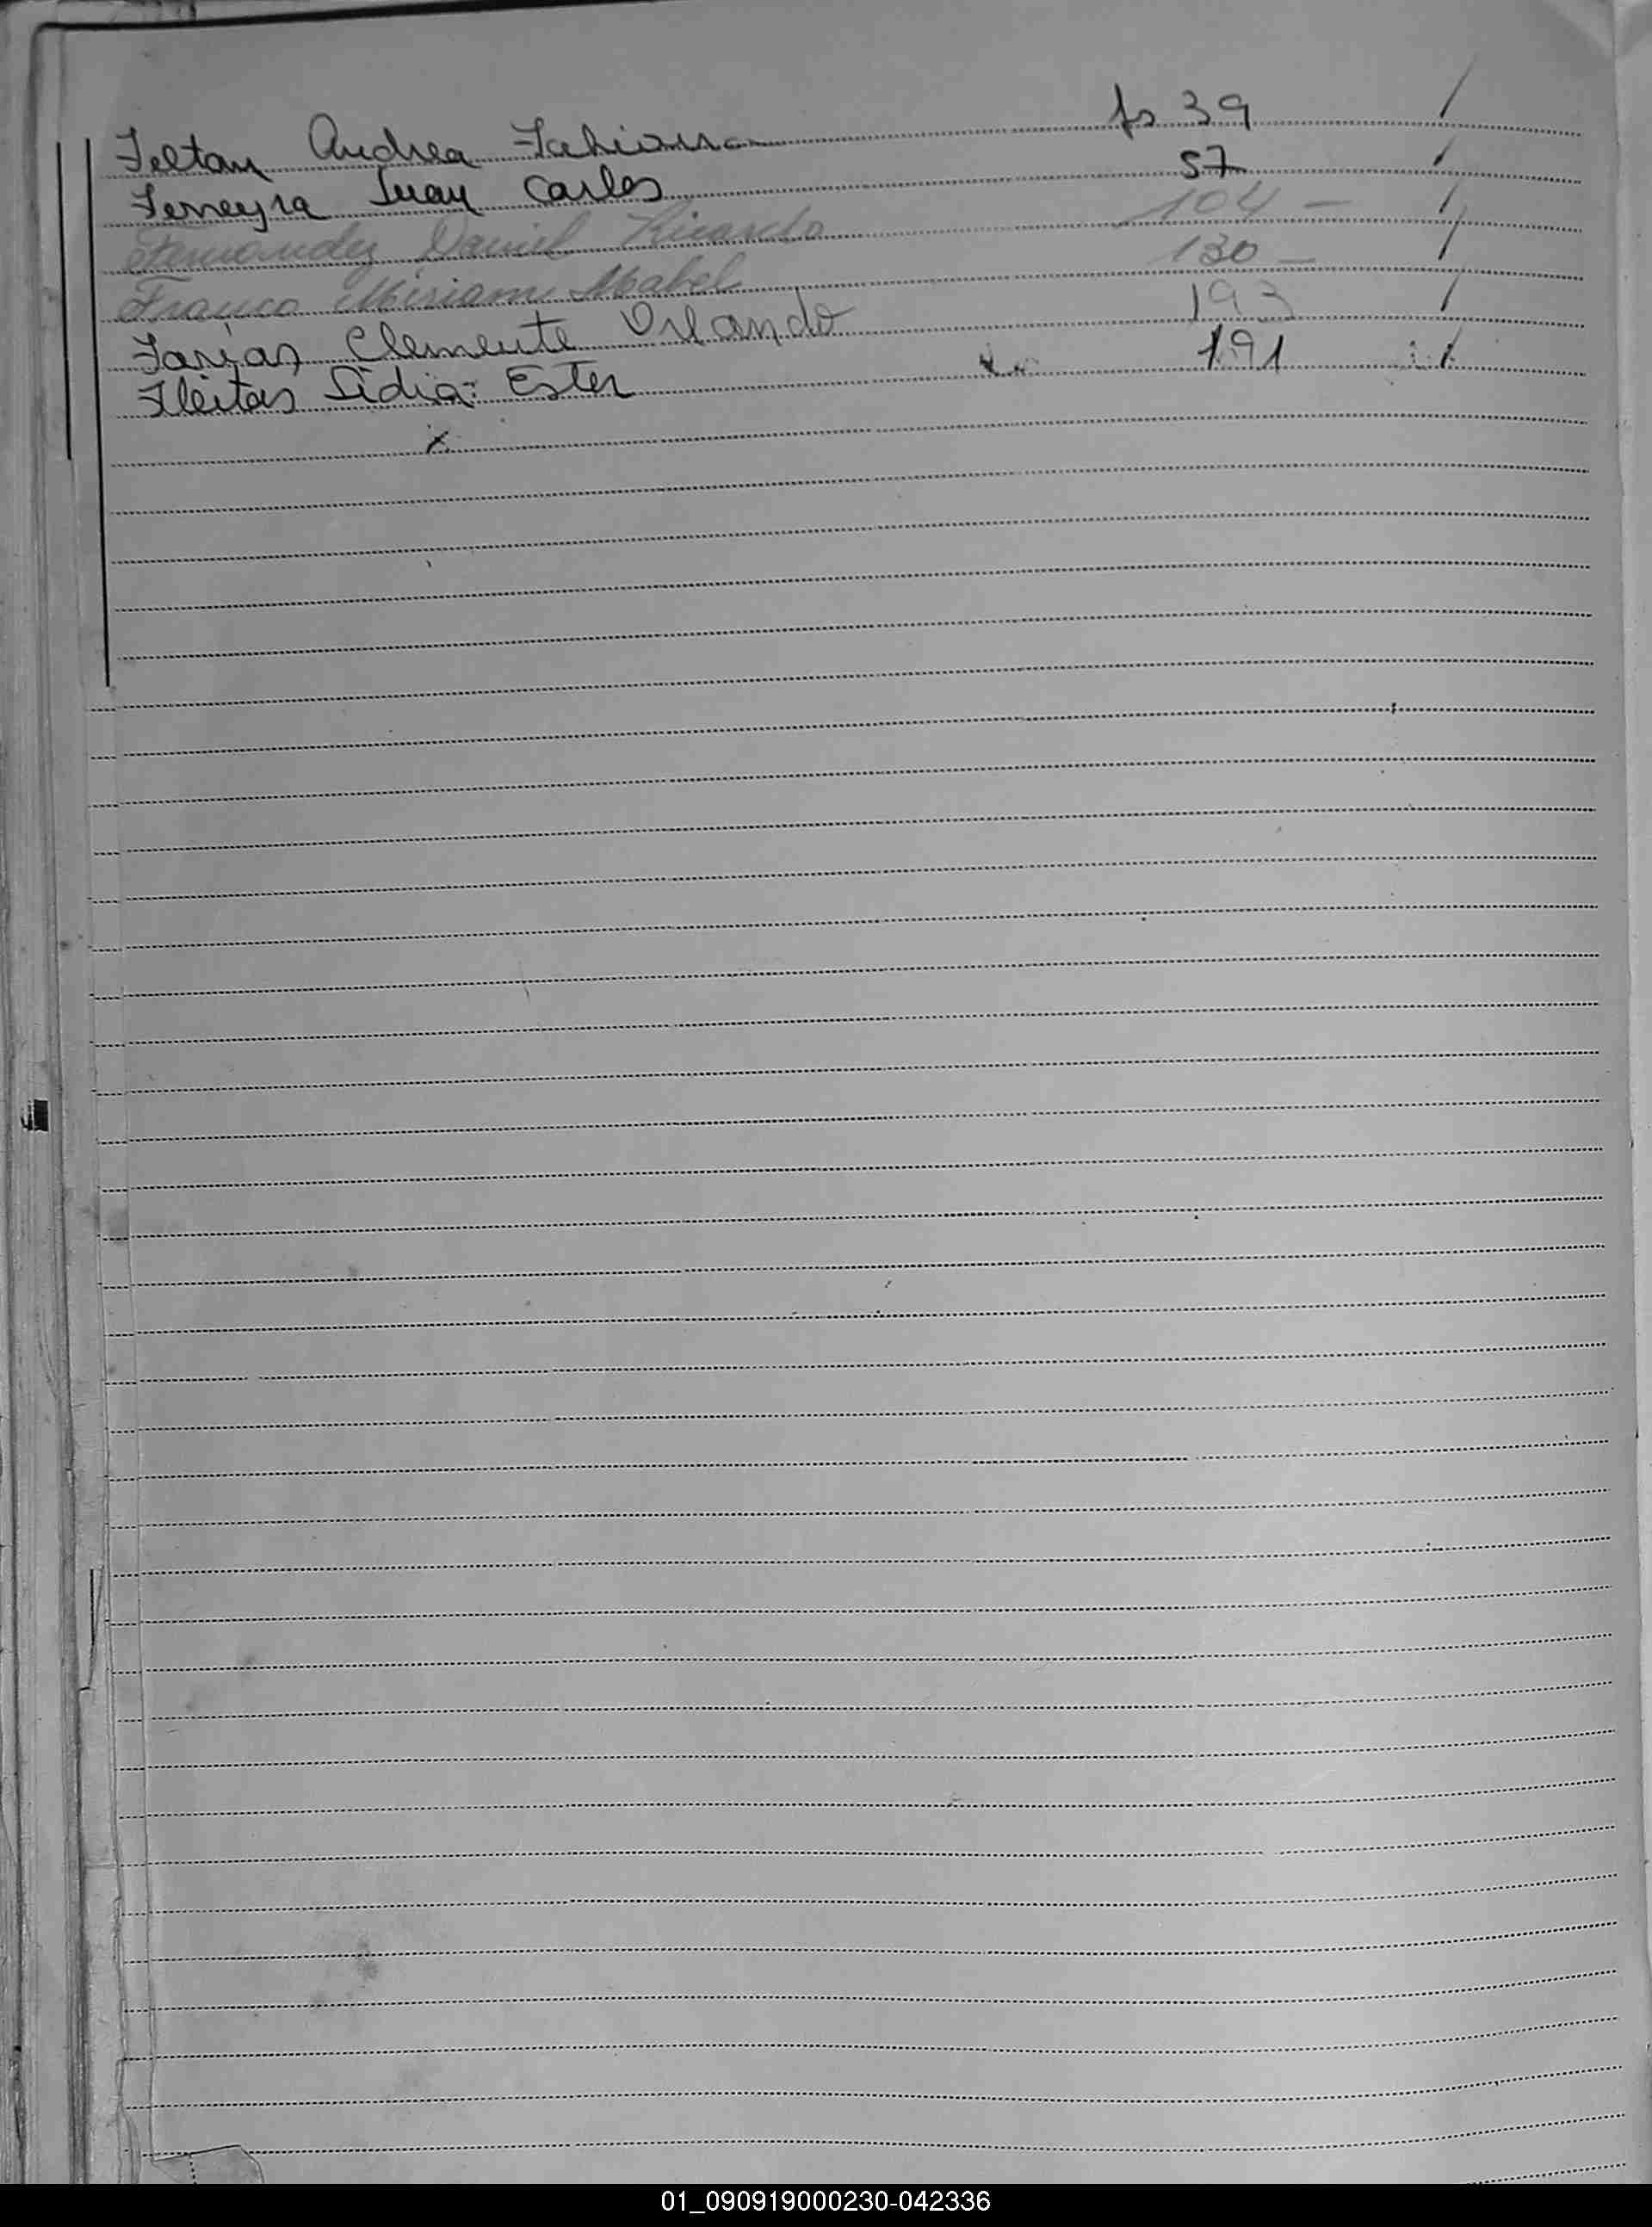 Feltan Andrea Fabiana fs 39
Ferreyra Juan Carlos 57
Fernandez Daniel Ricardo 104 -
Franco Miriam Mabel 130 -
Farias Clemente Orlando 193
Fleitas Lidia Ester 191
01_090919000230-042336